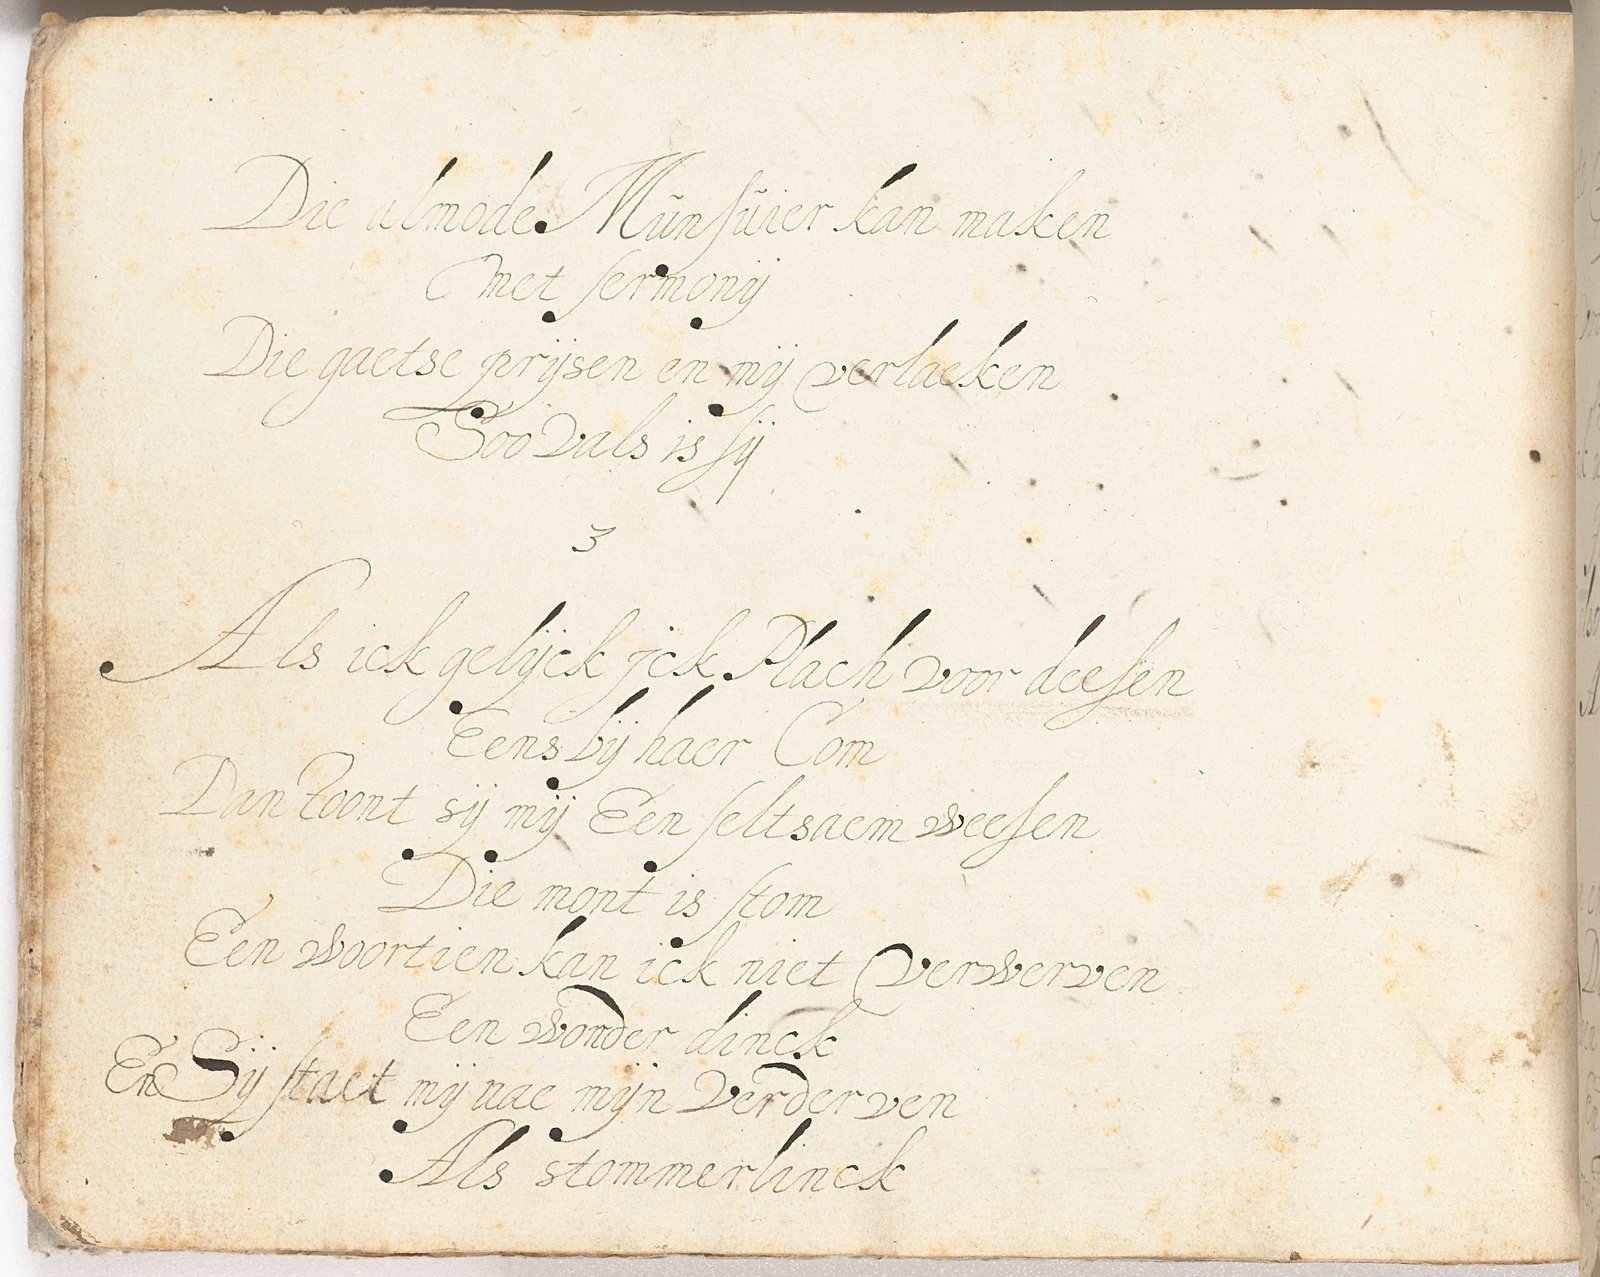 Die almode Munsuier kan maken
met sermonij
Die gaetse prijsen en mij verlaeken
Soo vals is sij
3
Als ick gelijck jck Plach voor deesen
Eens bij haer Com
Dan toont sij mij Een seltsaem weesen
Die mont is stom
Een woortien kan ick niet verwerven
Een wonder dinck
En Sij staet mij nae mijn verderven
Als stommerlinck